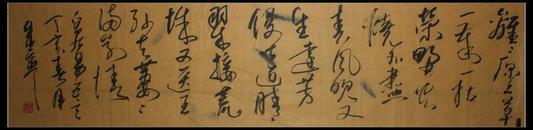 離〻原上草
一歲一枯
榮野火
燒不盡
春風吹又
生遠芳
侵古道晴
翠接荒
城又送王
孫去萋〻
滿別情
白居易五言
丁亥春月